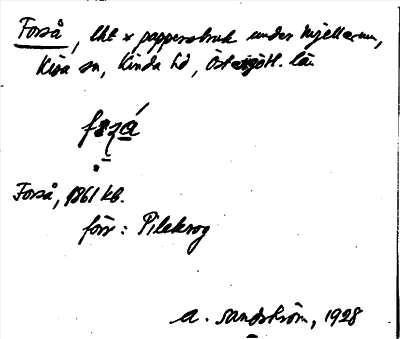 Forså, lht x pappersbruk under Mjellerum,
Kisa sn, Kinda hd, Östergötl. län
Forså, 1861 kb.
förr: Pilekrog
A. Sandström, 1928